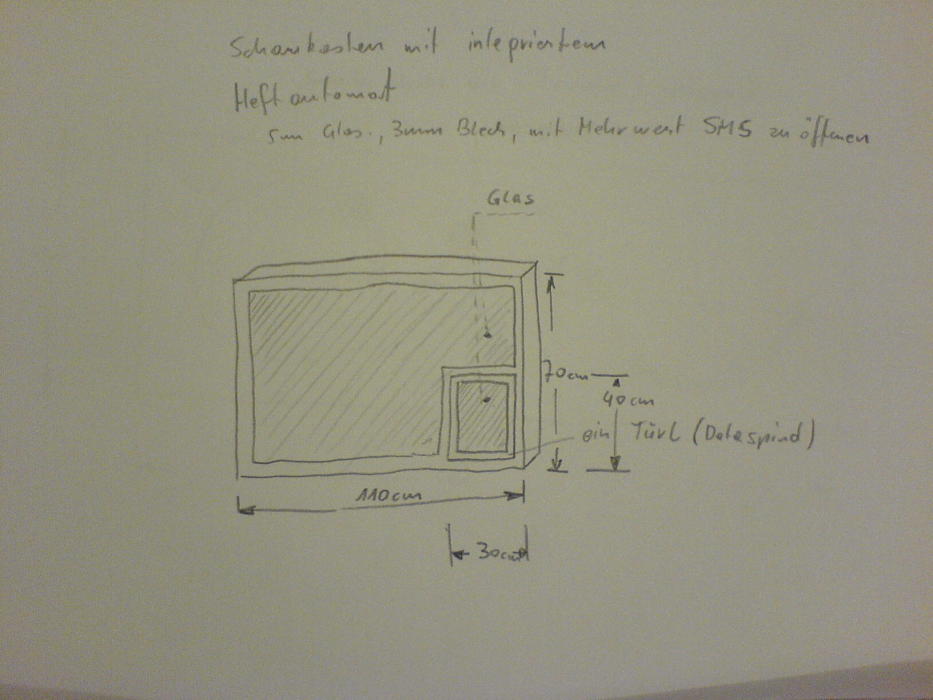 Schaukasten mit integriertem
Heftautomat
5mm Glas., 3mm Blech, mit Mehrwert SMS zu öffnen
Glas
70cm
40cm
ein Türl (Dataspind)
110cm
30cm